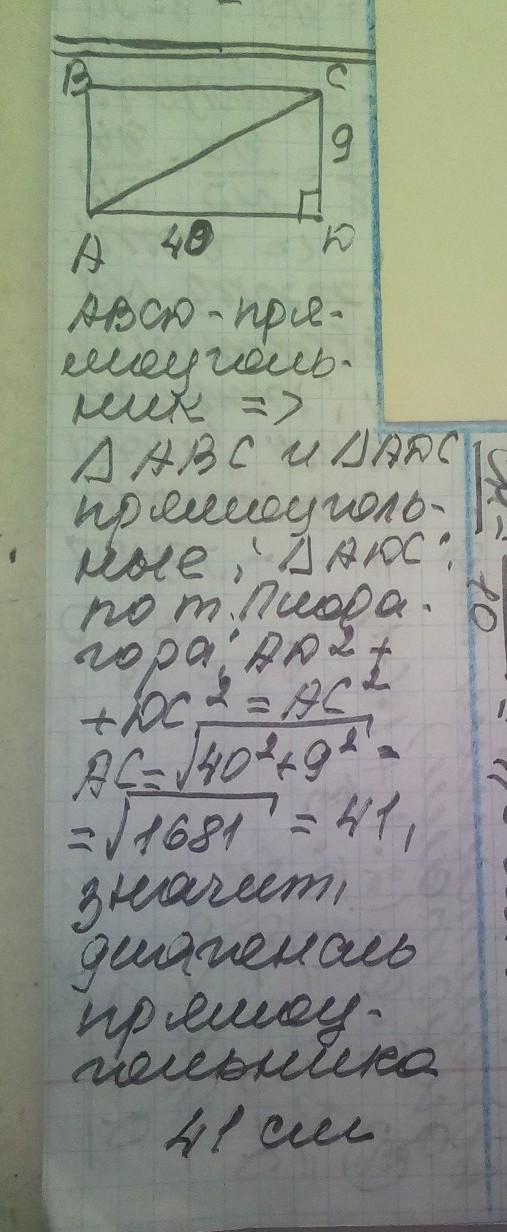 B
C
9
A
40
D
ABCD - пря-
моуголь-
ник =>
△ABC и △ADC
прямоуголь-
ные; △ADC:
по т. Пифа-
гора: AD² +
+ DC² = AC²
AC = √40² + 9² =
= √1681 = 41,
значит,
диагональ
прямоу-
гольника
41 см
10